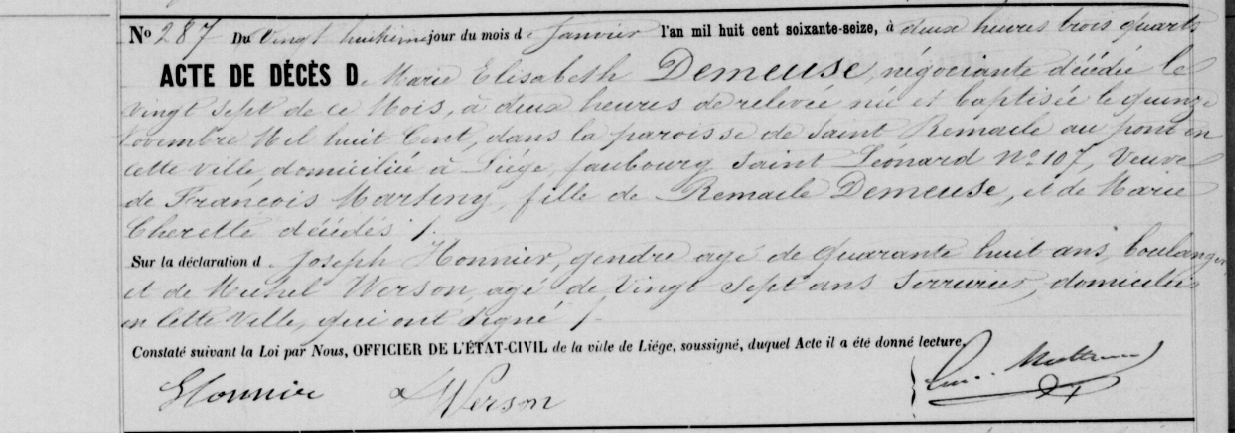 N° 287 Du Vingt huitieme jour du mois d. Janvier l'an mil huit cent soixante-seize, à deux heures trois quarts
ACTE DE DÉCÈS D. Marie Elisabeth Demeuse, négociante décédée le
vingt sept de ce Mois, à deux heures de relevée née et baptisée le quinze
Novembre Mil huit Cent, dans la paroisse de Saint Remacle au pont en
cette Ville, domiciliée à Liége, faubourg Saint Léonard N° 107, Veuve
de Francois Martiny, fille de Remacle Demeuse, et de Marie
Cherette décédés /.
Sur la déclaration d. Joseph Honnier, gendre agé de quarante huit ans, boulanger
et de Michel Werson, agé de Vingt Sept ans Serrurier, domiciliés
en Cette Ville, qui ont Signé /.
Constaté suivant la Loi par Nous, OFFICIER DE L'ÉTAT-CIVIL de la ville de Liége, soussigné, duquel Acte il a été donné lecture.
Honnier Werson